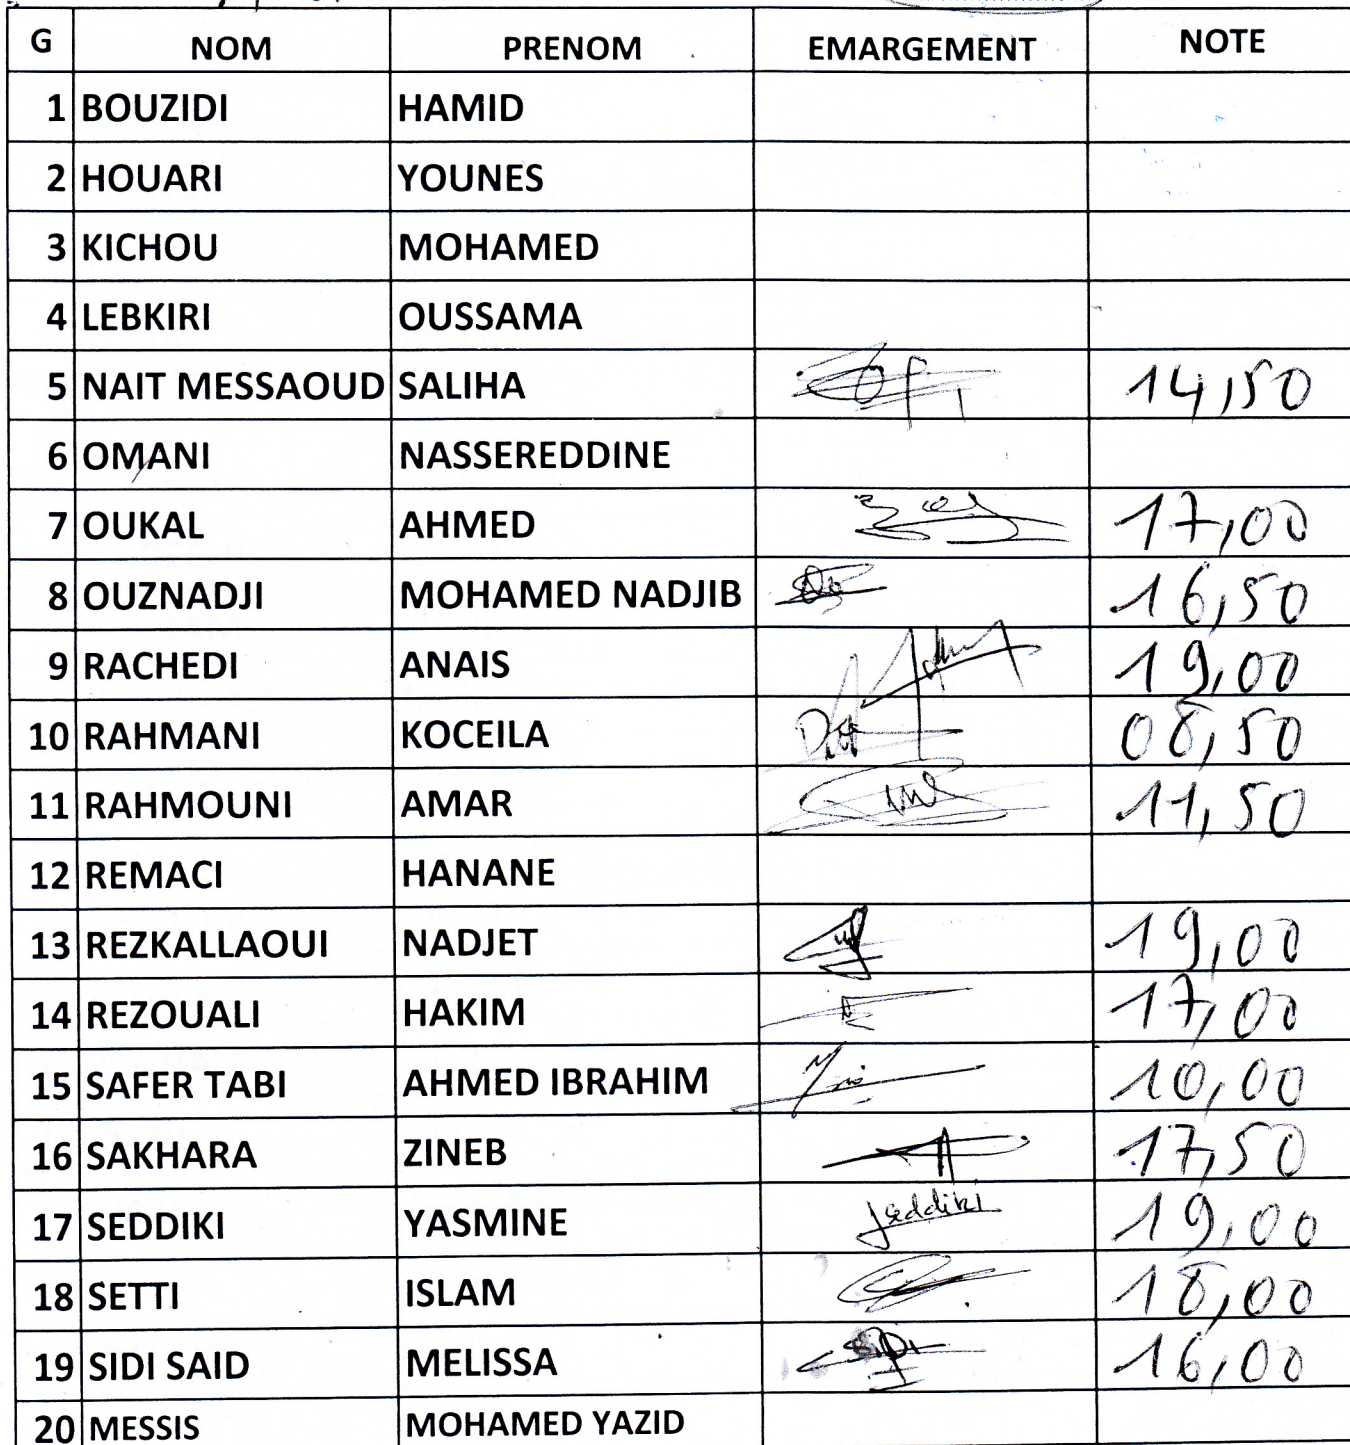 G NOM PRENOM EMARGEMENT NOTE
1 BOUZIDI HAMID
2 HOUARI YOUNES
3 KICHOU MOHAMED
4 LEBKIRI OUSSAMA
5 NAIT MESSAOUD SALIHA 14,50
6 OMANI NASSEREDDINE
7 OUKAL AHMED 17,00
8 OUZNADJI MOHAMED NADJIB 16,50
9 RACHEDI ANAIS 19,00
10 RAHMANI KOCEILA 08,50
11 RAHMOUNI AMAR 11,50
12 REMACI HANANE
13 REZKALLAOUI NADJET 19,00
14 REZOUALI HAKIM 17,00
15 SAFER TABI AHMED IBRAHIM 10,00
16 SAKHARA ZINEB 17,50
17 SEDDIKI YASMINE Seddiki 19,00
18 SETTI ISLAM 18,00
19 SIDI SAID MELISSA 16,00
20 MESSIS MOHAMED YAZID